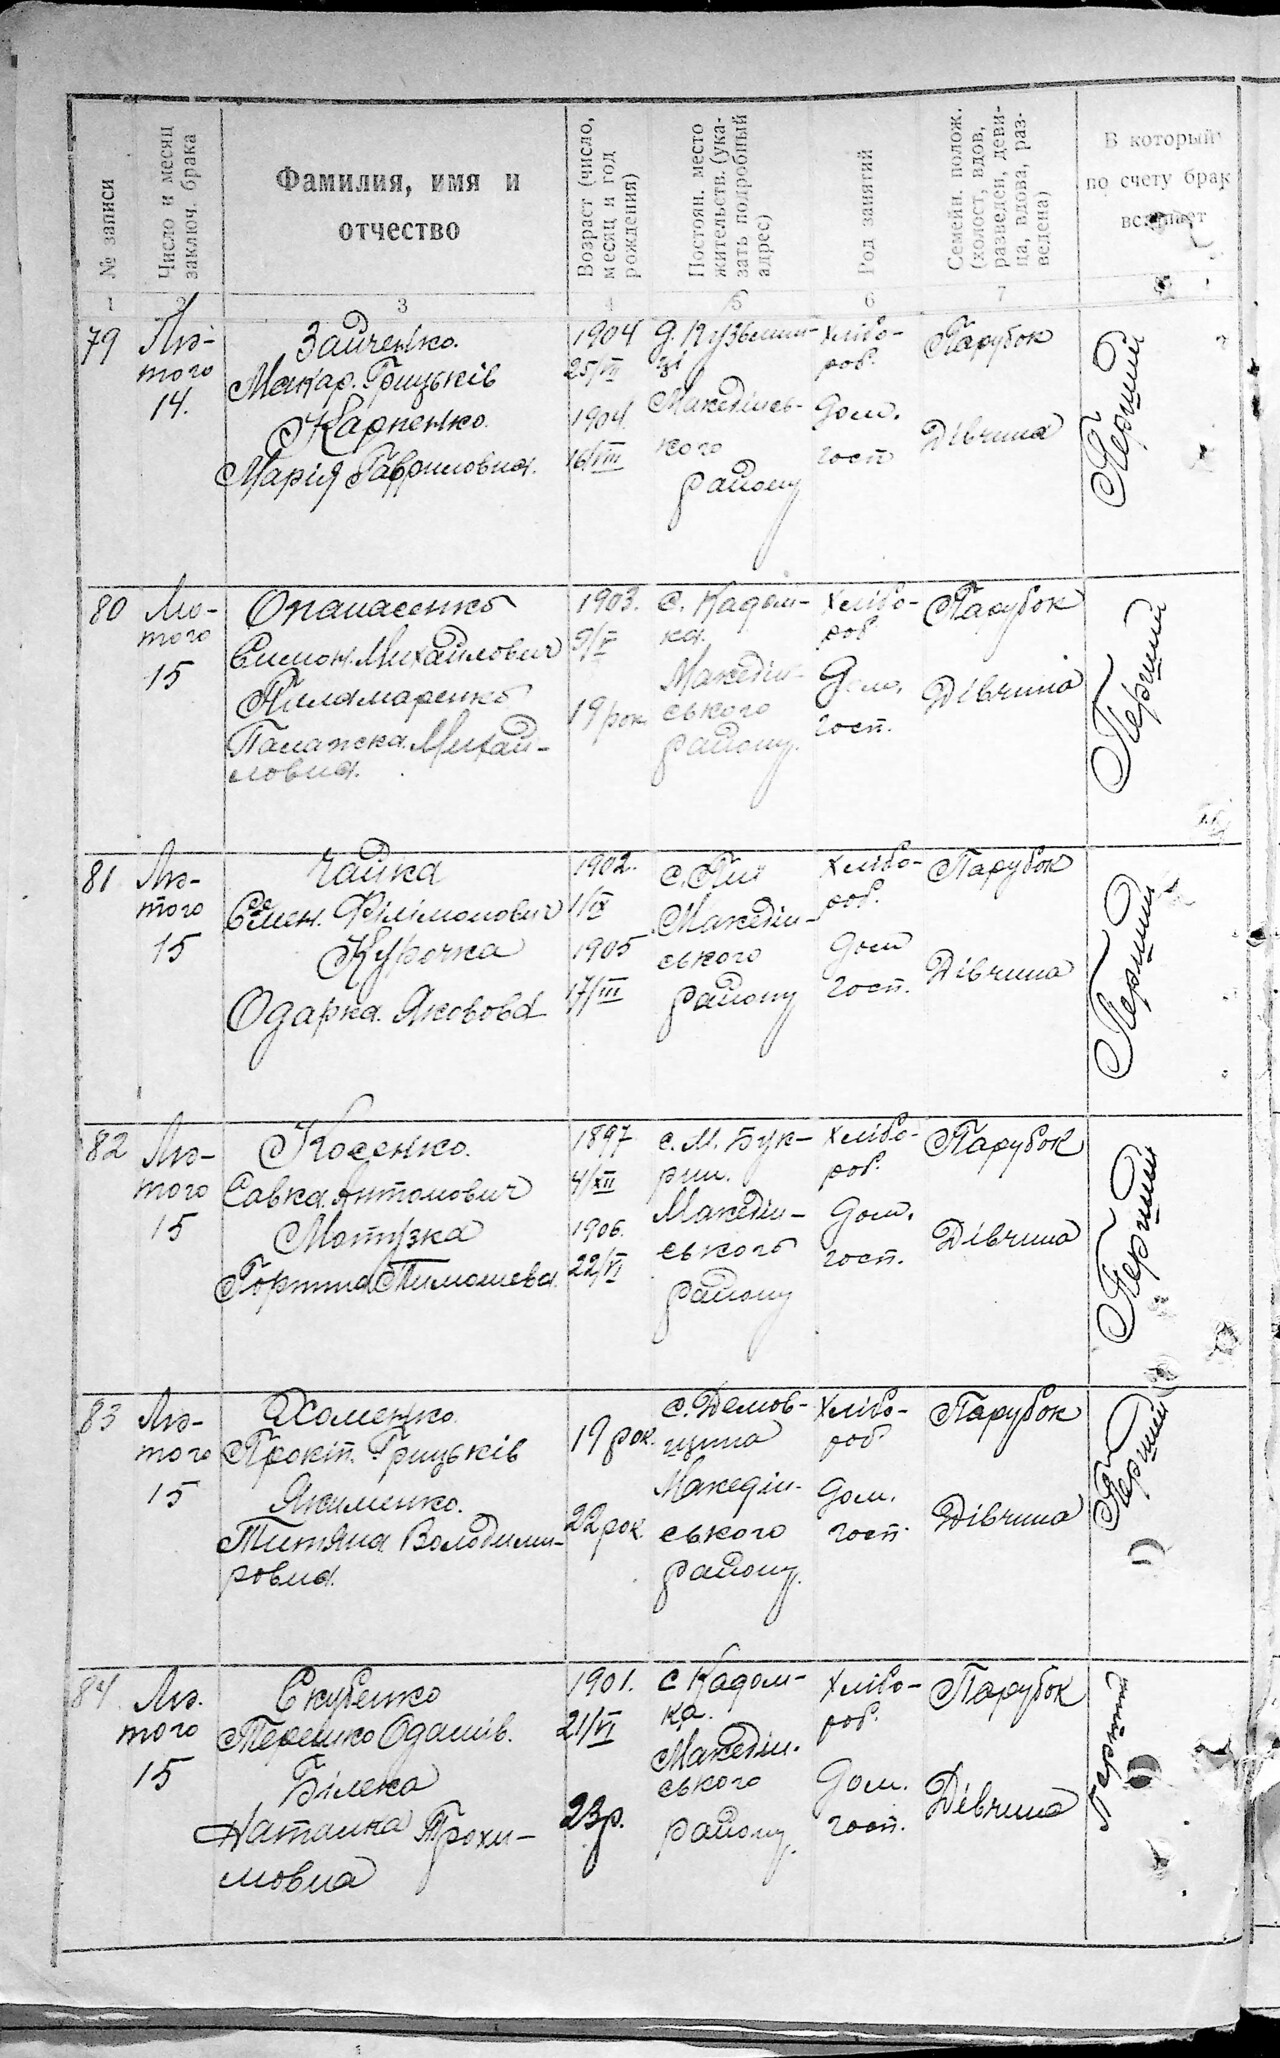 № записи
Число и месяц
заключ. брака
Фамилия, имя и
отчество
Возраст (число,
месяц и год
рождения)
Постоян. место
жительств. (ука-
зать подробный
адрес)
Род занятий
Семейн. полож.
(холост, вдов,
разведен, деви-
ца, вдова, раз-
ведена)
В который
по счету брак
вступает
1
2
3
4
5
6
7
8
79
Лю-
того
14.
Зайченко.
Макар. Грицьків
Карпенко.
Марія Гавриловна.
1904
25/VII
1904.
16/VIII
д. Кузьмин-
ці
Македонсь-
кого
району
Хлібо-
роб.
Дом.
госп
Парубок
Дівчина
Перший
80
Лю-
того
15
Опанасенко
Симон. Михайлович
Паламаренко
Палажка. Михай-
ловна.
1903.
9/V
19 рок.
с. Кадом-
ка.
Македон-
ського
району.
Хлібо-
роб
Дом.
госп.
Парубок
Дівчина
Перший
81
Лю-
того
15
Чайка
Семен. Філімонович
Курочка
Одарка. Яковова
1902.
1/IX
1905
17/III
с. Пии
Македон-
ського
району
Хлібо-
роб.
Дом
госп.
Парубок
Дівчина
Перший
82
Лю-
того
15
Косенко.
Савка. Антонович
Мотузка
Горпина Тимошева.
1897
4/XII
1906.
22/VI
с. М. Бук-
рин.
Македон-
ського
району
Хлібо-
роб.
Дом.
госп.
Парубок
Дівчина
Перший
83
Лю-
того
15
Хоменко.
Прокіп. Грицьків
Якименко.
Титяна Володими-
ровна.
19 рок.
22 рок
с. Демов-
щина
Македон-
ського
району.
Хлібо-
роб
Дом.
госп.
Парубок
Дівчина
Перший
84
Лю-
того
15
Скубенко
Терешко Одамів.
Білека
Наталка Трохи-
мовна
1901.
21/VI
23 р.
с Кадом-
ка.
Македон-
ського
району.
Хлібо-
роб.
Дом.
госп.
Парубок
Дівчина
Перший